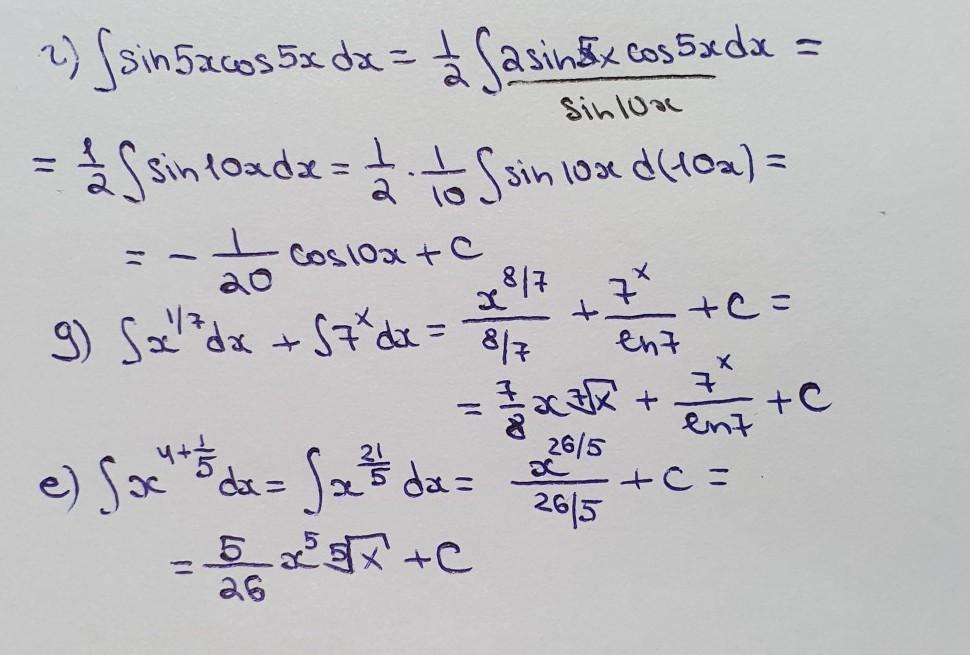 г) ∫sin5xcos5x dx = 1/2 ∫2sin5x cos5x dx =
sin10x
= 1/2 ∫sin10x dx = 1/2 · 1/10 ∫sin10x d(10x) =
= - 1/20 cos10x + C
g) ∫x^(1/7) dx + ∫7^x dx = x^(8/7) / (8/7) + 7^x / ln7 + C =
= 7/8 x ⁷√x + 7^x / ln7 + C
e) ∫x^(4+1/5) dx = ∫x^(21/5) dx = x^(26/5) / (26/5) + C =
= 5/26 x^5 ⁵√x + C